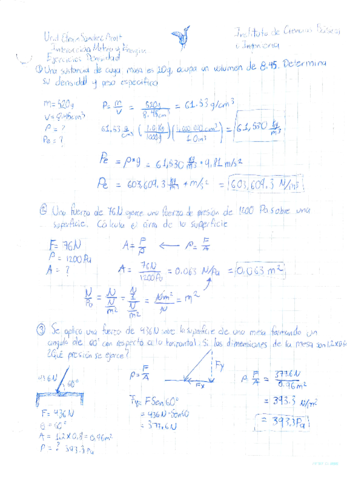 Instituto de Ciencias Básicas
e Ingeniería
Ejercicios Densidad
① Una sustancia de cuya masa es 520g, ocupa un volumen de 8.45. Determina
su densidad y peso específico
m = 520g
V = 8.45cm³
ρ = ?
Pe = ?
ρ = m/V = 520g/8.45cm³ = 61.53 g/cm³
61.53 g/cm³ (1.0 kg/1000g)(1 000 000 cm³/1.0 m³) = 61,530 kg/m³
Pe = ρ*g = 61,530 kg/m³ * 9.81 m/s²
Pe = 603,609.3 kg/m³ * m/s² = 603,609.3 N/m³
Una fuerza de 76N ejerce una fuerza de presion de 1200 Pa sobre una
superficie. Calcula el área de la superficie
F = 76N
P = 1200Pa
A = ?
A = F/P ← P = F/A
A = 76N/1200Pa = 0.063 N/Pa = 0.063 m²
N/Pa = N/(N/m²) = Nm²/N = m²
Se aplica una fuerza de 436N sobre la superficie de una mesa formando un
angulo de 60° con respecto a la horizontal. Si las dimensiones de la mesa son
¿Qué presión se ejerce?
60°
F = 436N
θ = 60°
A = 1.2x0.8 = 0.96m²
P = ? 393.3 Pa
P = F/A
Fy
Fx
Fy = F Sen60°
= 436N·Sen60
= 377.6N
P = F/A = 377.6N/0.96m²
= 393.3 N/m²
= 393.3 Pa